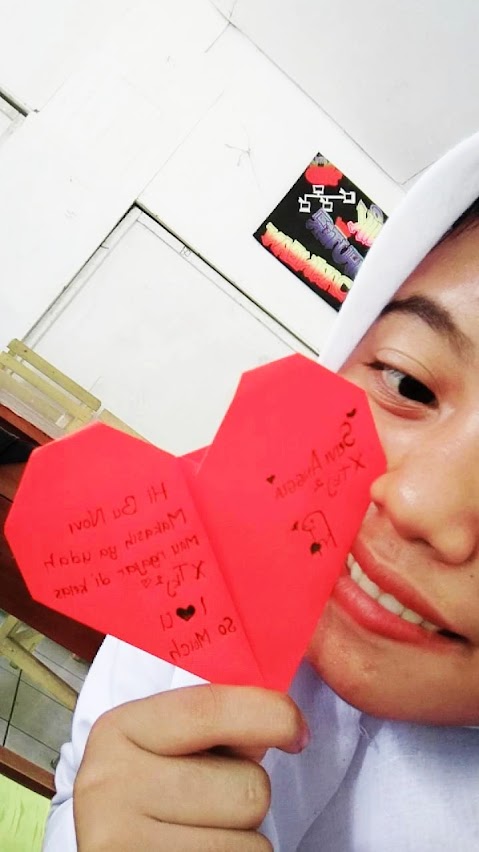 Hi Bu Novi
Makasih ya udah
mau ngajar di kelas
X TKJ 2
I ♥ U
So Much
Anggun
X TKJ 2